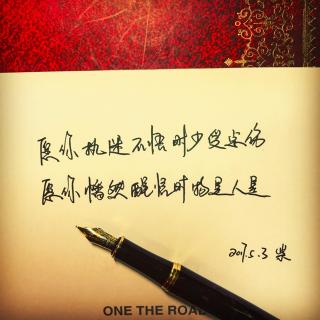 愿你执迷不悟时少受点伤
愿你幡然醒悟时物是人是
2017.5.3 柴
ONE THE ROAD